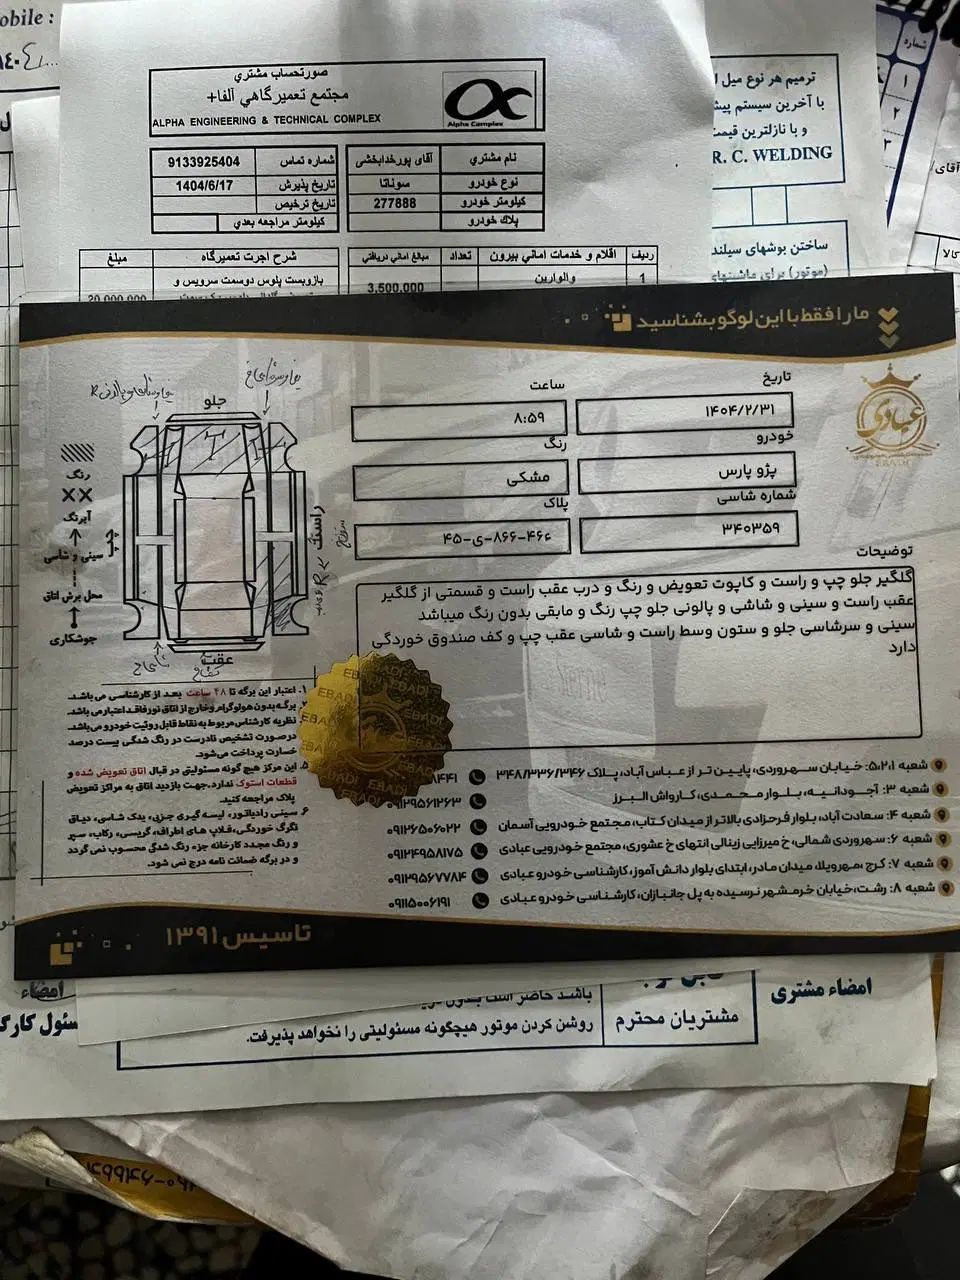 صورتحساب مشتري
مجتمع تعميرگاهي آلفا+
ALPHA ENGINEERING & TECHNICAL COMPLEX
Alpha Complex
نام مشتري آقای پورخدابخشی
نوع خودرو سوناتا
كيلومتر خودرو 277888
پلاک خودرو
شماره تماس 9133925404
تاريخ پذيرش 1404/6/17
تاريخ ترخيص
كيلومتر مراجعه بعدي
رديف اقلام و خدمات اماني بيرون تعداد مبالغ اماني دريافتي
1 والوارين 3,500,000
شرح اجرت تعميرگاه مبلغ
بازوبست پلوس دوسمت سرويس و
20,000,000
ترمیم هر نوع میل
با آخرین سیستم
و با نازلترین قیمت
R. C. WELDING
ساختن بوشهای سیلند
(موتور) برای ماشینهای
شماره
۱
۲
۳
آقای
کالا
obile :
ما را فقط با این لوگو بشناسید
عبادی
EBADI
تاریخ
۱۴۰۴/۲/۳۱
ساعت
۸:۵۹
خودرو
پژو پارس
رنگ
مشکی
شماره شاسی
۳۴۰۳۵۹
پلاک
۴۵-ی-۸۶۶-۴۶ء
توضیحات
گلگیر جلو چپ و راست و کاپوت تعویض و رنگ و درب عقب راست و قسمتی از گلگیر
عقب راست و سینی و شاشی و پالونی جلو چپ رنگ و مابقی بدون رنگ میباشد
سینی و سرشاسی جلو و ستون وسط راست و شاسی عقب چپ و کف صندوق خوردگی
دارد
جلو
راست
چپ
عقب
رنگ
آبرنگ
سینی و شاسی
محل برش اتاق
جوشکاری
۱. اعتبار این برگه تا ۴۸ ساعت بعد از کارشناسی می باشد.
برگه بدون هولوگرام و خارج از اتاق نور فاقد اعتبار می باشد.
نظریه کارشناس مربوط به نقاط قابل روئیت خودرو می باشد.
درصورت تشخیص نادرست در رنگ شدگی بیست درصد
خسارت پرداخت می‌شود.
۵. این مرکز هیچ گونه مسئولیتی در قبال اتاق تعویض شده و
قطعات استوک ندارد.جهت بازدید اتاق به مراکز تعویض
پلاک مراجعه کنید.
۶. سینی رادیاتور، لیسه گیری جزیی، یدک شاسی، دیاق
تگرگ خوردگی، قلاپ های اطراف، گریسی، رکاب، سپر
و رنگ مجدد کارخانه جزء رنگ شدگی محسوب نمی گردد
و در برگه ضمانت نامه درج نمی شود.
EBADI
شعبه ۵،۲،۱: خیابان سهروردی، پایین تر از عباس آباد، پلاک ۳۴۸/۳۳۶/۳۴۶
۸۴۴۱
شعبه ۳: آجودانیه، بلوار محمدی، کارواش البرز
۰۹۱۲۹۵۶۱۲۶۳
شعبه ۴: سعادت آباد، بلوار فرحزادی بالاتر از میدان کتاب، مجتمع خودرویی آسمان
۰۹۱۲۶۵۰۶۰۲۲
شعبه ۶: سهروردی شمالی، خ میرزایی زینالی انتهای خ عشوری، مجتمع خودرویی عبادی
۰۹۱۲۴۹۵۸۱۷۵
شعبه ۷: کرج، مهرویلا، میدان مادر، ابتدای بلوار دانش آموز، کارشناسی خودرو عبادی
۰۹۱۲۹۵۶۷۷۸۴
شعبه ۸: رشت، خیابان خرمشهر نرسیده به پل جانبازان، کارشناسی خودرو عبادی
۰۹۱۱۵۰۰۶۱۹۱
تاسیس ۱۳۹۱
امضاء مشتری
مشتریان محترم
روشن کردن موتور هیچگونه مسئولیتی را نخواهد پذیرفت.
امضاء